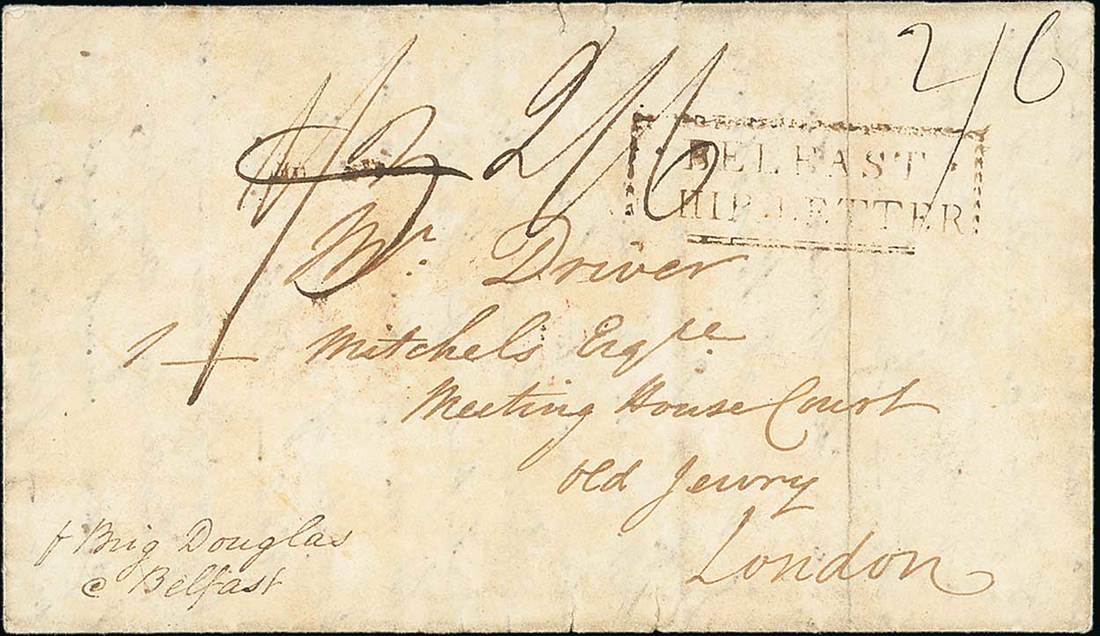 2/6
1/3 2/6
BELFAST
HIP LETTER
Mr. Driver
1 — Mitchels Esqre
Meeting House Court
Old Jewry
London
p Brig Douglas
@ Belfast